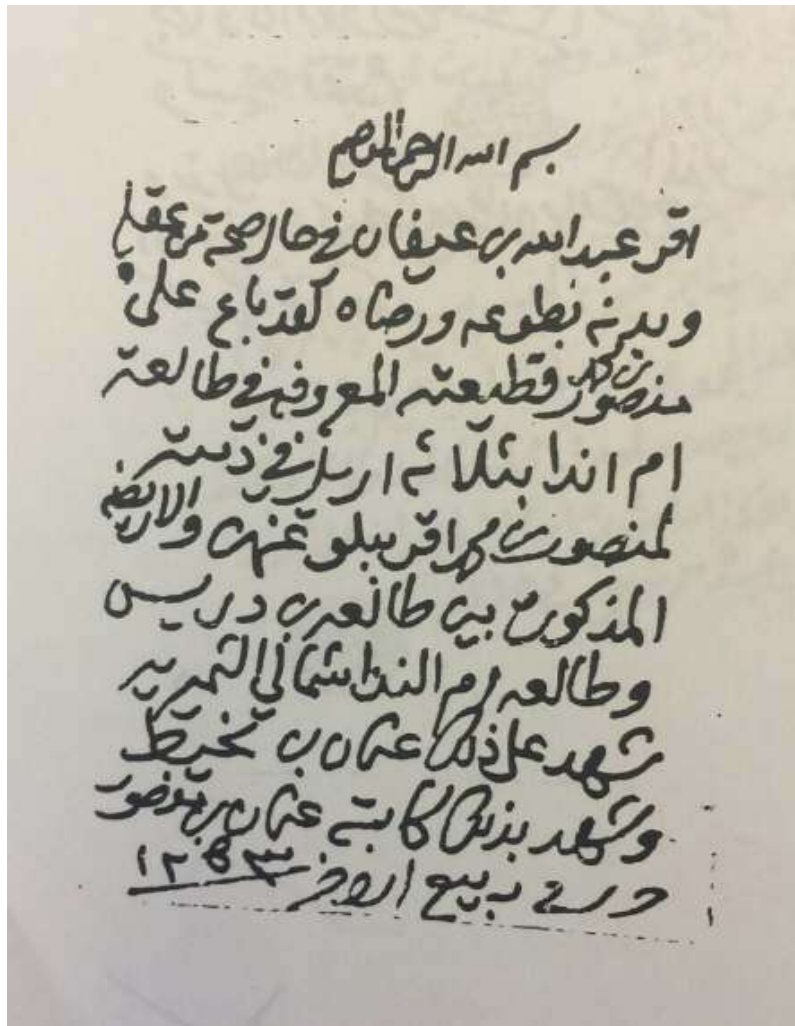 بسم الله الرحمن الرحيم
اقر عبدالله بن عيفان في حال صحة من عقله
وبدنه بطوعه ورضاه كقد باع على
منصور بن حمد قطيعته المعروفه في طالعة
ام اندا بثلاثه اريل في ذمته
لمنصور بن حمد اقر ببلوغهن والارض
المذكوره بين طالعة بن دريس
وطالعه ام الندا شمالي
شهد على ذلك عثمان بن
وشهد بذلك كاتبه عثمان بن منصور
ربيع الاخر ١٢٥٣